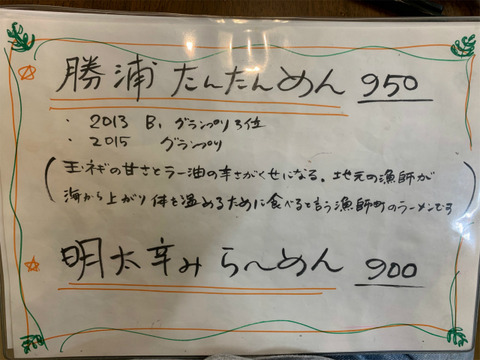 勝浦 たんたんめん 950
・ 2013 B1 グランプリ 3位
・ 2015 グランプリ
(玉ネギの甘さとラー油の辛さがくせになる。地元の漁師が
海から上がり体を温めるために食べると言う漁師町のラーメンです)
明太辛みら〜めん 900